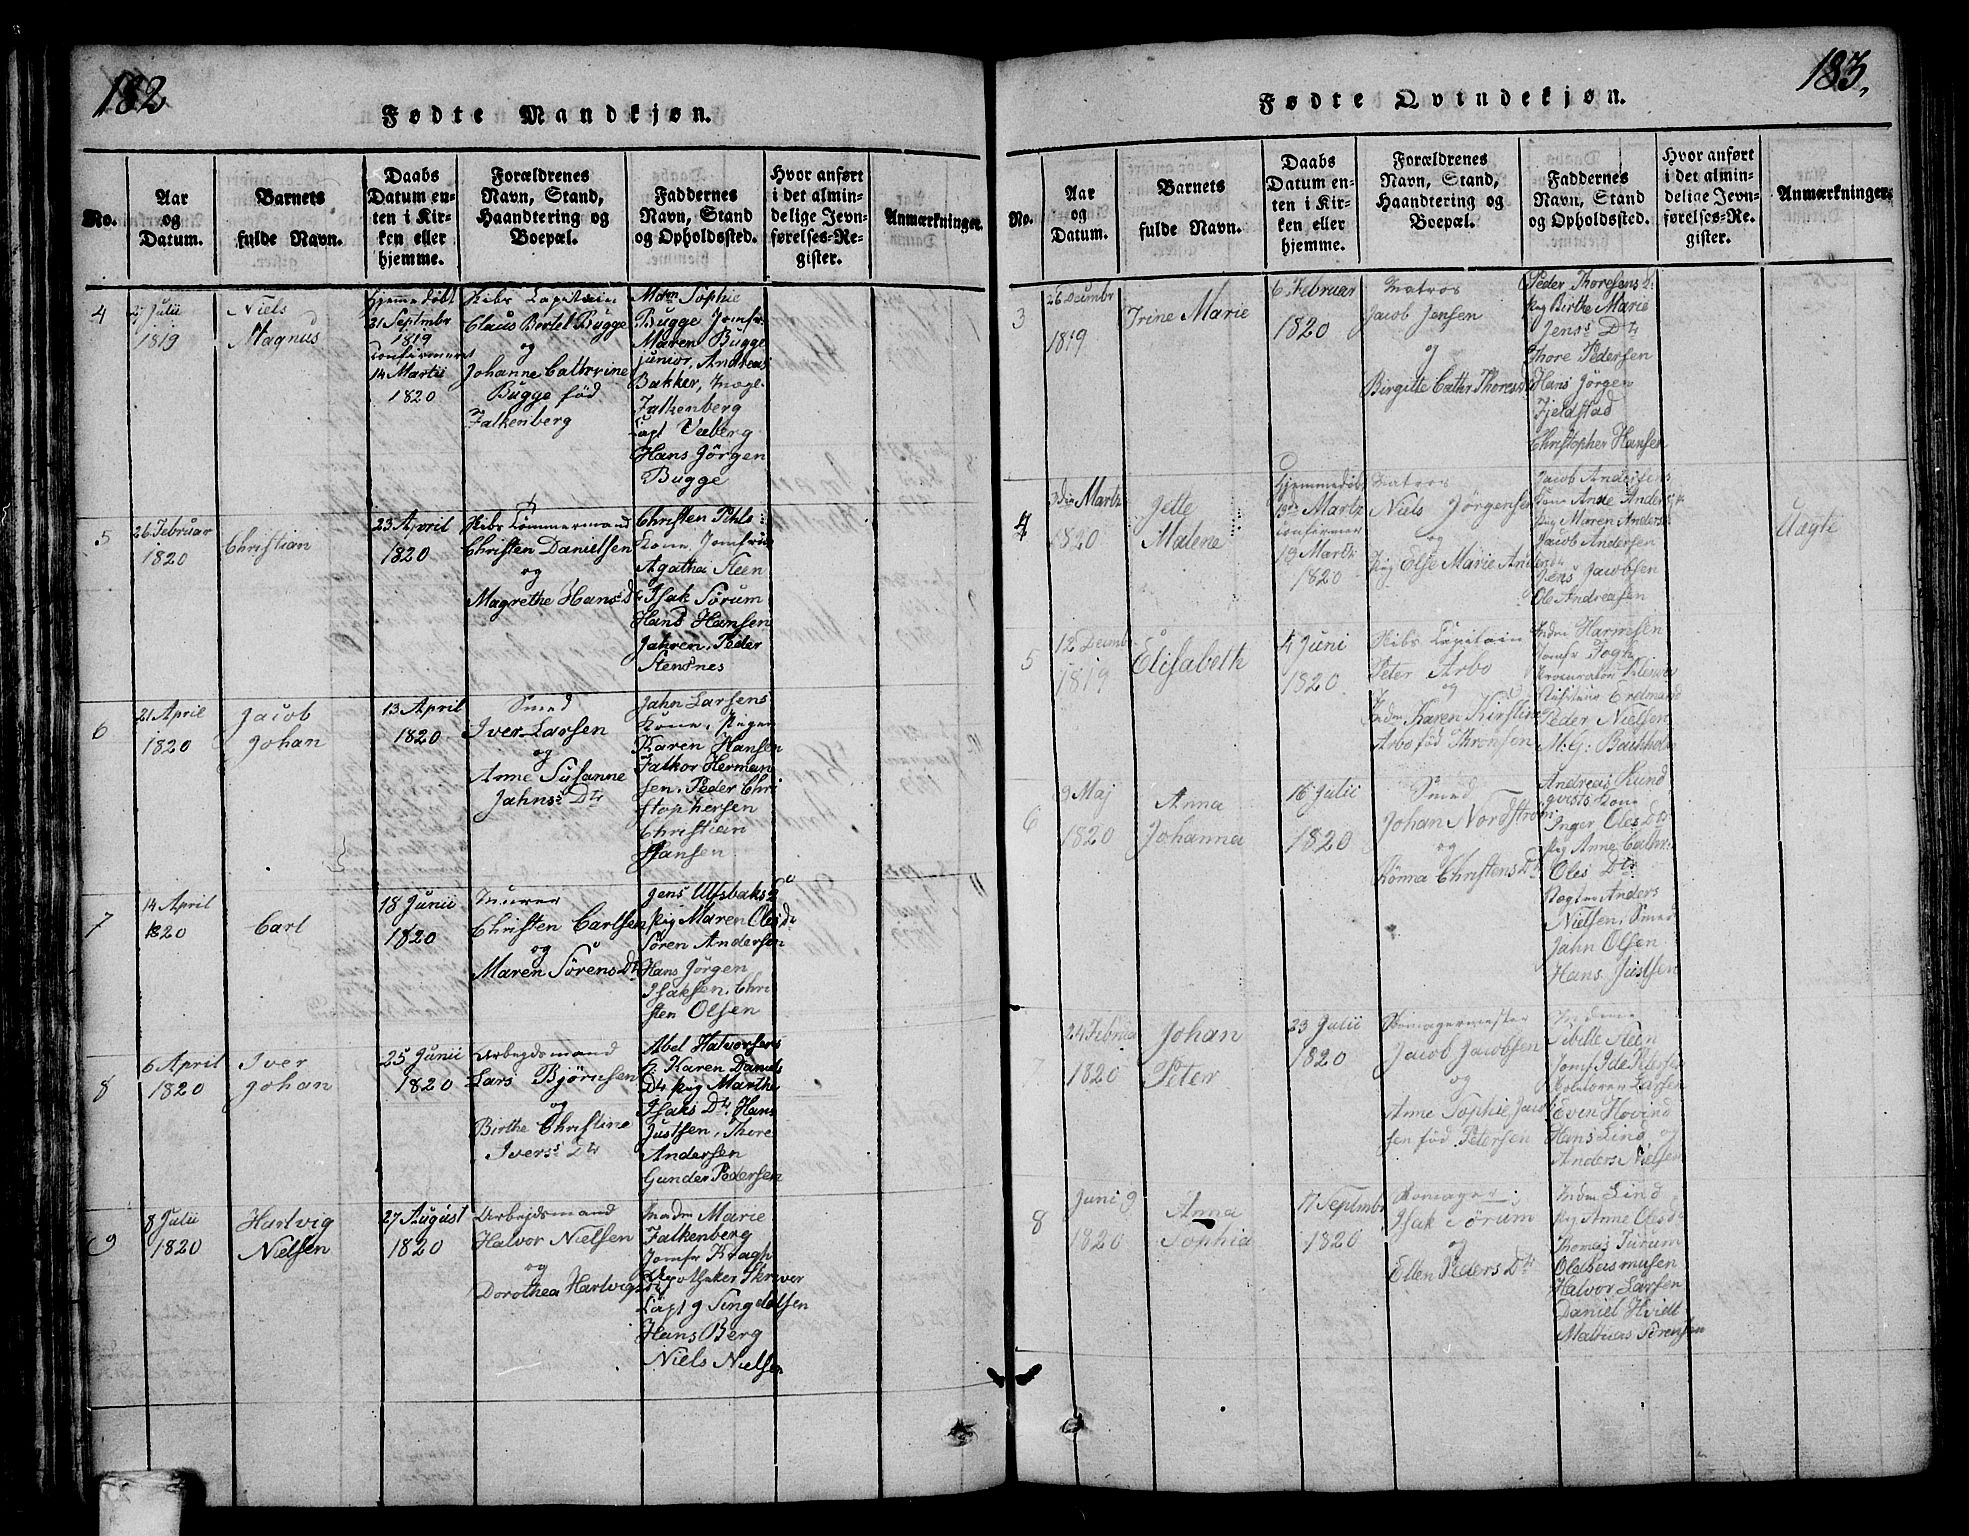 182
Fødte Mandkjøn.
No.
Aar
og
Datum.
Barnets
fulde Navn.
Daabs
Datum en-
ten i Kir-
ken eller
hjemme.
Forældrenes
Navn, Stand,
Haandtering og
Boepæl.
Faddernes
Navn, Stand
og Opholdssted.
Hvor anført
i det almin-
delige Jevn-
førelses-Re-
gister.
Anmærkninger.
4
27 Julii
1819
Niels
Magnus
Hjemmedøbt
21 Septmbr
1819
14 Martii
1820
Skibs Capitain
Claus Bertel Bugge
og
Johanne Cathrine
Bugge fød
Falkenberg
Mdm Sophie
Bugge Jomfr:
Maren Bugge
junior, Andreas
Bakker,
Falkenberg
Capt
Hans Jörgen
Bugge
5
26 Februar
1820
Christian
23 April
1820
Skibs Tömmermand
Christen Danielsen
og
Magrethe Hans: Dt
Christen Pehls:
Kone, Jomfrue
Agatha Steen
Isak Sörum
Hans Hansen
Jahren, Peder
Stensnes
6
21 April
1820
Jacob
Johan
13 April
1820
Smed
Iver Larsen
og
Anne Susanne
Jahns: Dtr
Jahn Larsens
Kone, Pigen
Karen Hansen
Falkor Herman
sen, Peder Chri
stophersen
Christian
Hansen
7
14 April
1820
Carl
18 Junii
1820
Muurer
Christen Carlsen
og
Maren Sörens Dtr
Jens Ulfsbaks
Pig Maren Oles D
Sören Andersen
Hans Jörgen
Isaksen, Chri
sten Olsen
8
6 April
1820
Iver
Johan
25 Junii
1820
Arbejdsmand
Lars Björnsen
og
Birthe Christine
Ivers: Dtr
Abel Halvorsens
Karen Daniels
Dtr Pig Marthe
Isaks Dtr Hans
Justsen, Thore
Andersen
Gunder Pedersen
9
8 Julii
1820
Hartvig
Nielsen
27 August
1820
Arbejdsmand
Halvor Nielsen
og
Dorothea Hartvigs
Madm Marie
Falkenberg
Jomfr Kragh
Apotheker Skriver
Capt
Hans Berg
Niels Nielsen
183.
Fødte Qvindekjøn.
No.
Aar
og
Datum.
Barnets
fulde Navn.
Daabs
Datum en-
ten i Kir-
ken eller
hjemme.
Forældrenes
Navn, Stand,
Haandtering og
Boepæl.
Faddernes
Navn, Stand
og Opholdssted.
Hvor anført
i det almin-
delige Jevn-
førelses-Re-
gister.
Anmærkninger.
3
26 Decmbr
1819
Trine Marie
6 Februar
1820
Matros
Jacob Jensen
og
Birgitte Cathr Thores
Peder Thoresens
Pig Birthe Marie
Jens: Dtr
Thore Pedersen
Hans Jörgen
Fjeldstad
Christopher Hansen
4
3die Martz
1820
Jitte
Malene
Hjemmedøbt
Martz
19 Martz
1820
Matros
Niels Jörgensen
og
Pig Else Marie
Jacob Andersens
Kone Anne Anders
Pig Maren Anders
Jacob Andersen
Jens Jacobsen
Ole Andreasen
Uægte
5
12 Decmbr
1819
Elisabeth
4 Juni
1820
Skibs Capitain
Peter Arbo
og
Karen Kirstine
Arbo fød Thronsen
Harmsen
Jomfr
Procurator
Erdmand
Peder Nielsen
M: G: Bachholm
6
9 Maj
1820
Anna
Johanna
16 Julii
1820
Smed
Johan Nordstrøm
og
Rönna Christens D
Andreas Kund
qvists Kone
Inger Oles D
Pig Anne Cathr:
Oles Dtr
Anders
Nielsen, Smed
Jahn Olsen
Hans Justsen
7
24 Februar
1820
Johan
Peter
23 Julii
1820
Skomagermester
Jacob Jacobsen
og
Anne Sophie Jacob
sen fød Petersen
Madme
Sibille Steen
Jomf Ide Peterse
Larsen
Even Hovind
Hans Lind og
Anders Nielsen
8
Juni 9
1820
Anna
Sophia
17 Septmbr
1820
Skomager
Isak Sörum
og
Ellen Peders Dtr
Mdm Lind
Pig Anne Oles D
Thomas
Ole Rasmusen
Halvor Larsen
Daniel Hvidt
Mathias Sörensen